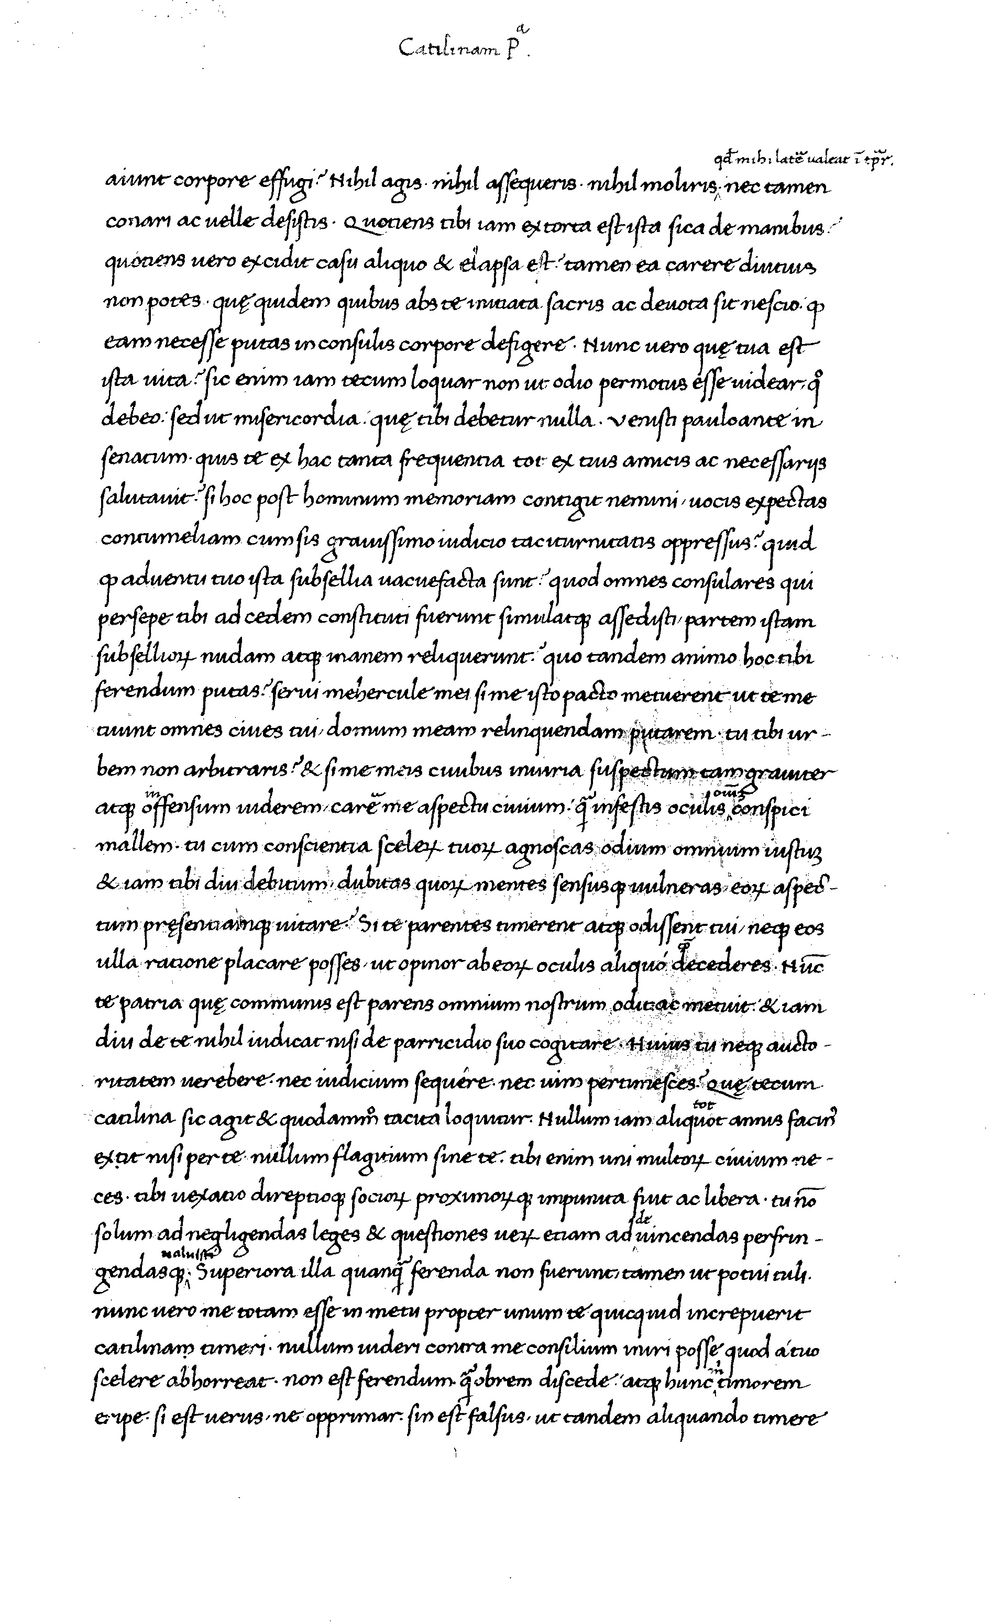 Catilinam Pª.
qđ mihi latē ualeat ī tp̄r.
aiunt corpore effugi? Nihil agis · nihil assequeris · nihil moliris, nec tamen
conari ac uelle desistis · Quotiens tibi iam extorta est ista sica de manibus?
quotiens uero excidit casu aliquo & elapsa est? tamen ea carere diutius
non potes · quę quidem quibus abs te initiata sacris ac deuota sit nescio · ꝙ
eam necesse putas in consulis corpore defigere · Nunc uero quę tua est
ista uita? sic enim iam tecum loquar non ut odio permotus esse uidear, q̊
debeo: sed ut misericordia: quę tibi debetur nulla · Venisti pauloante in
senatum · quis te ex hac tanta frequentia tot ex tuis amicis ac necessarijs
salutauit? si hoc post hominum memoriam contigit nemini, uocis expectas
contumeliam cum sis grauissimo iudicio taciturnitatis oppressus? quid
ꝙ aduentu tuo ista subsellia uacuefacta sunt? quod omnes consulares qui
persepe tibi ad cedem constituti fuerunt simulatqꝫ assedisti, partem istam
subsellioꝝ nudam atqꝫ inanem reliquerunt? quo tandem animo hoc tibi
ferendum putas? serui mehercule mei si me isto pacto metuerent ut te me
tuunt omnes ciues tui, domum meam relinquendam putarem · tu tibi ur-
bem non arbitraris? & si me meis ciuibus iniuria suspectum tam grauiter
in oīuꝫ
atqꝫ offensum uiderem, carē me aspectu ciuium: q̄ infestis oculis conspici
mallem · tu cum conscientia sceleꝝ tuoꝝ agnoscas odium omnium iustuꝫ
& iam tibi diu debitum, dubitas quoꝝ mentes sensusqꝫ uulneras, eoꝝ aspec-
tum pręsentiamqꝫ uitare? Si te parentes timerent atqꝫ odissent tui, neqꝫ eos
ulla ratione placare posses, ut opinor ab eoꝝ oculis aliquo decederes · Nūc
te patria quę communis est parens omnium nostrum odit ac metuit: & iam
diu de te nihil iudicat nisi de parricidio suo cogitare · Huius tu neqꝫ aucto-
ritatem uerebere · nec iudicium sequére · nec uim pertimesces? Quę tecum
tot
catilina sic agit & quodammº tacita loquitur · Nullum iam aliquot annis facin̄
extit nisi per te · nullum flagitium sine te: tibi enim uni multoꝝ ciuium ne-
ces · tibi uexatio direptioqꝫ socioꝝ proximoꝝqꝫ impunita fuit ac libera · tu nō
de
solum ad negligendas leges & quęstiones ueꝝ etiam ad uincendas perfrin-
ualuisti
gendasqꝫ · Superiora illa quanq̄ ferenda non fuerunt, tamen ut potui tuli.
nunc uero me totam esse in metu propter unum te quicquid increpuerit
catilinam timeri · nullum uideri contra me consilium iniri posse quod á tuo
m
scelere abhorreat · non est ferendum · q̄obrem discede: atqꝫ hunc timorem
eripe · si est uerus, ne opprimar: sin est falsus, ut tandem aliquando timere